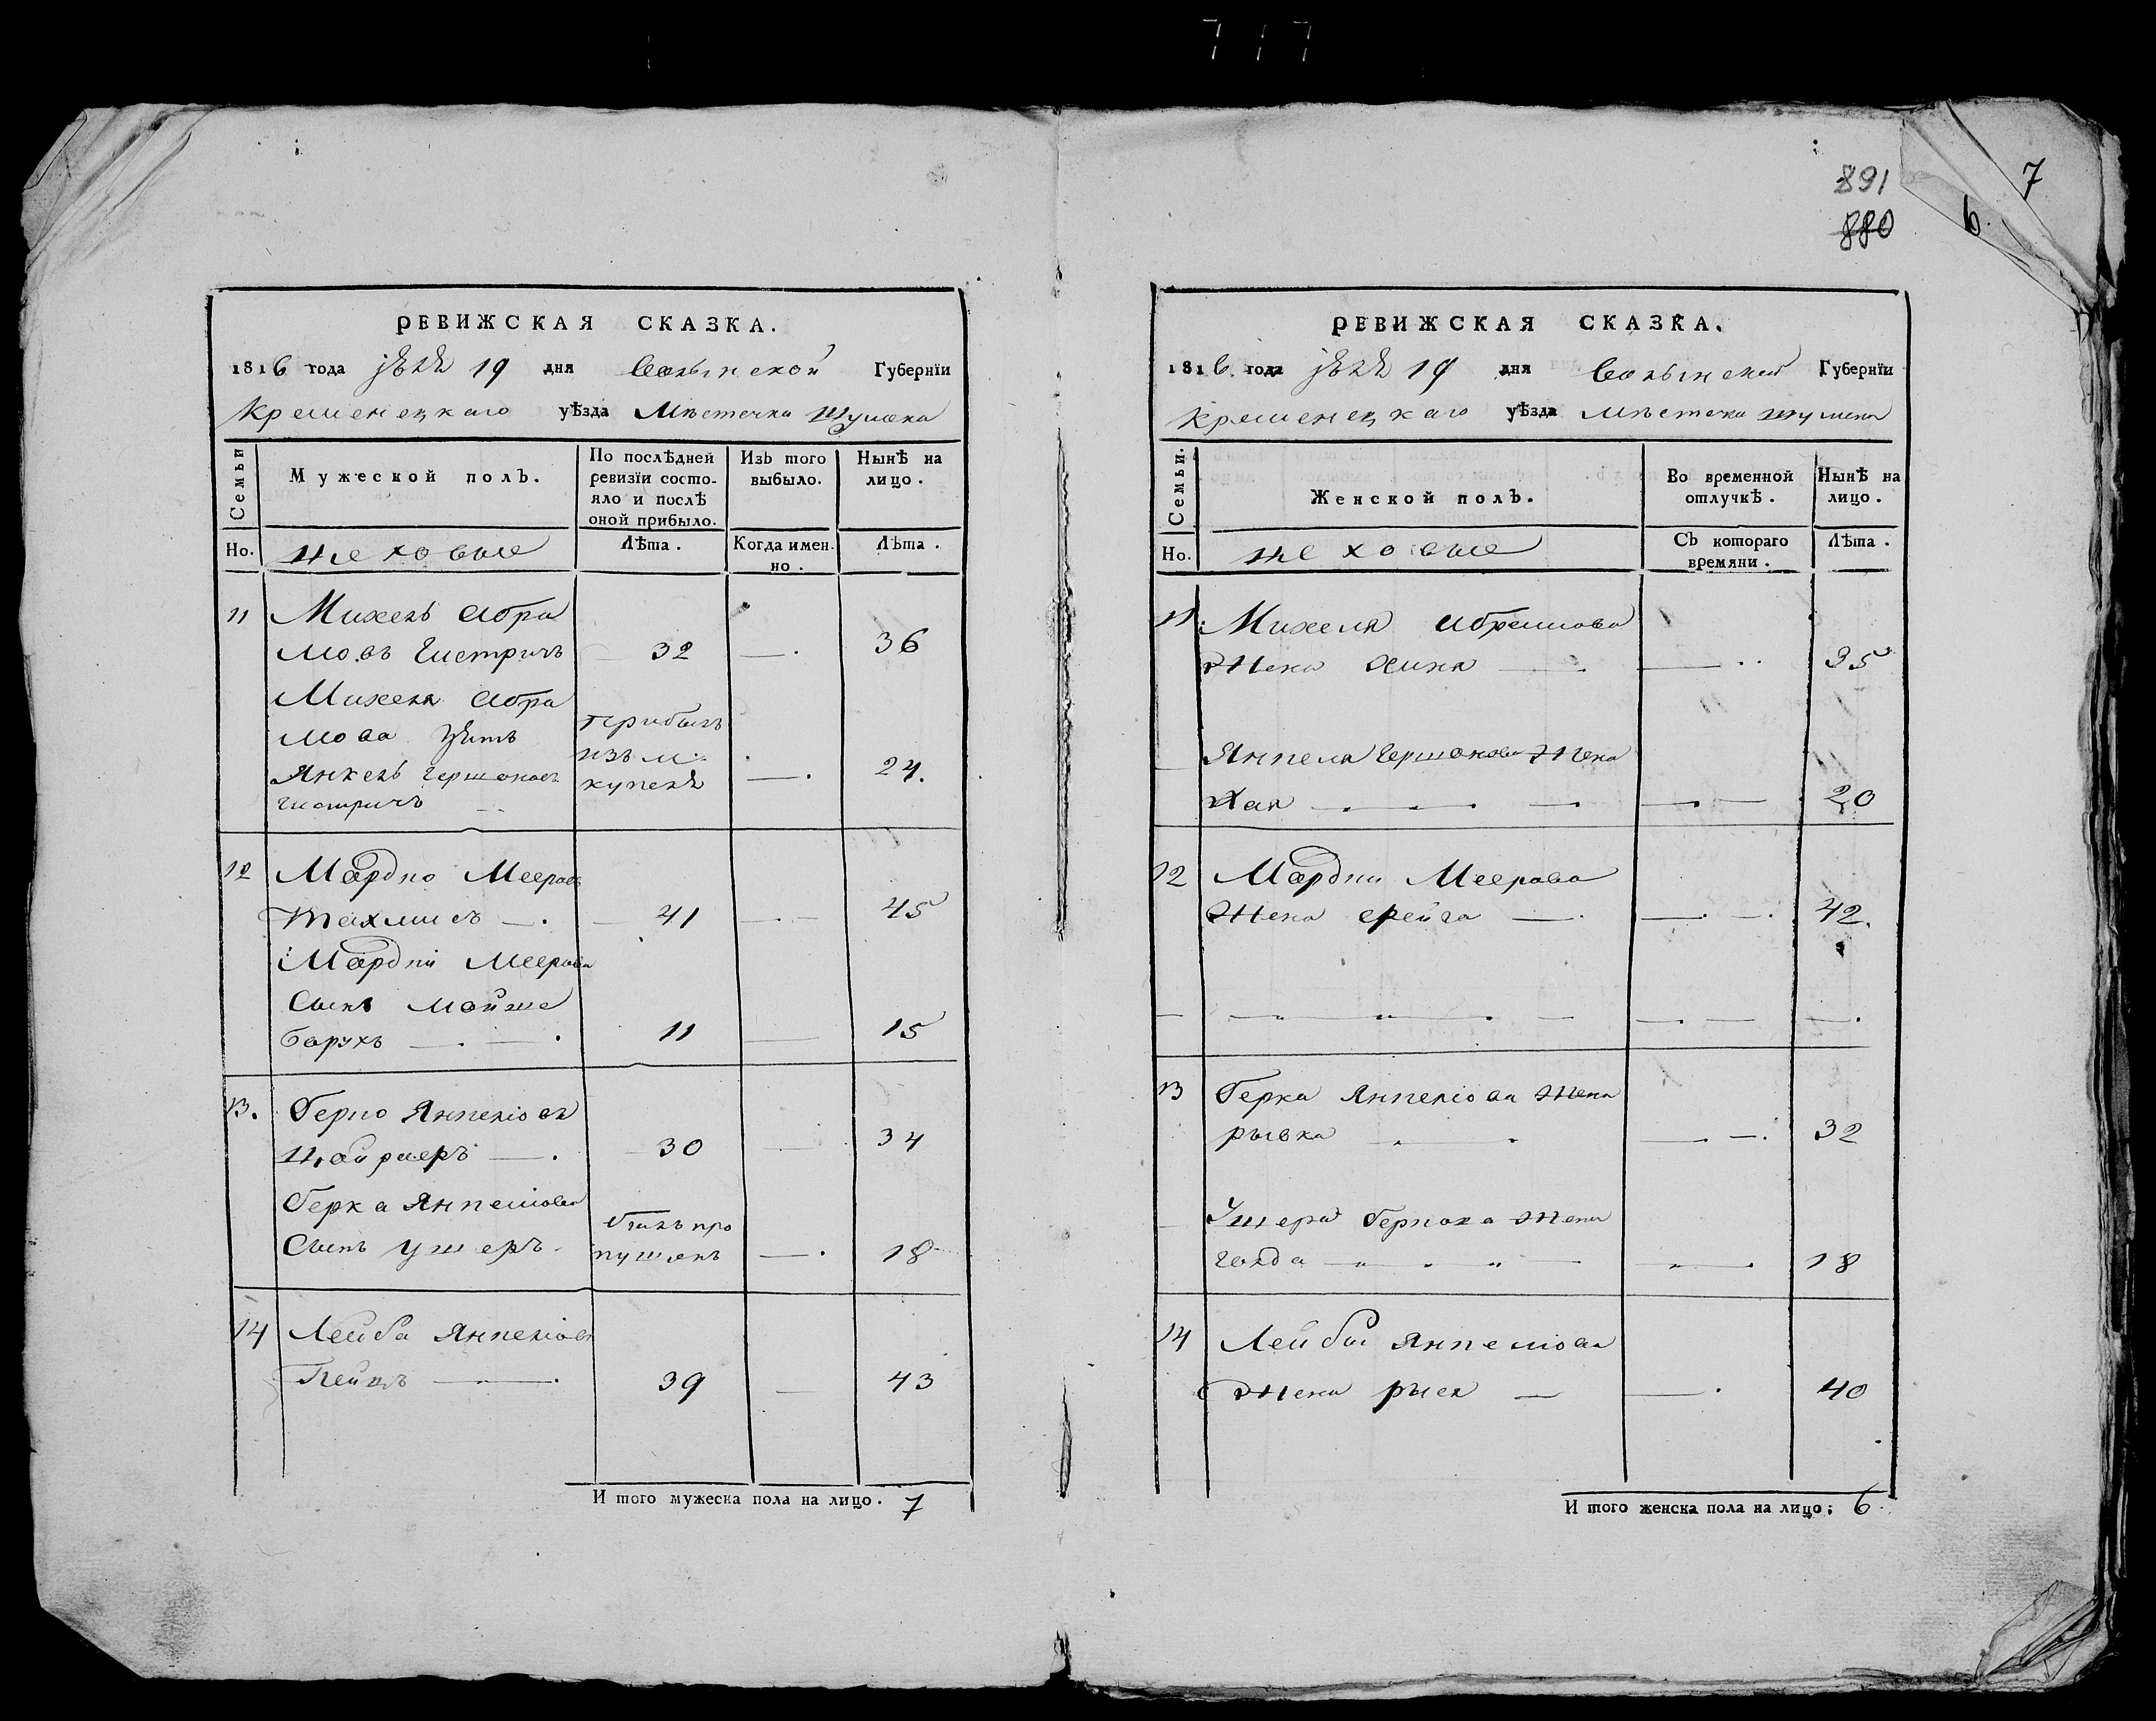 717
891
880
7
6.
РЕВИЖСКАЯ СКАЗКА.
1816 года 19 дня Волынской Губернїи
Кременецкаго уѣзда Мѣстечка Шумска
Семьи
Мужеской полъ.
По послѣдней ревизїи состояло и послѣ оной прибыло.
Изъ того выбыло.
Нынѣ на лицо.
Но.
цеховые
Лѣта.
Когда именно.
Лѣта.
11 Михель Абра
мовъ 32 — 36
Михеля Абра
мова зять прибылъ
Янкель Гершоновъ изъ м. — 24.
купеля
12 Мардко Мееровъ
— 41 — 45
Мардки Меерова
Сынъ Мойше
Барухъ — 11 — 15
13. Берко Янкелiовъ
— 30 — 34
Берка Янкелiова былъ про
Сынъ Ушеръ пущенъ — 18
14 Лейба Янкелiовъ
39 — 43
И того мужеска пола на лицо. 7
РЕВИЖСКАЯ СКАЗКА.
1816 года 19 дня Волынской Губернїи
Кременецкаго уѣзда Мѣстечка Шумска
Семьи.
Женской полъ.
Во временной отлучкѣ.
Нынѣ на лицо.
Но.
цеховые
Съ котораго времяни.
Лѣта.
11 Михеля Абрамова
Жена — — 35
Янкеля Гершонова Жена
Хая — — 20
12 Мардки Меерова
Жена Фрейга — — 42.
13 Берка Янкелiова Жена
рывка — — 32
Ушера Беркова Жена
голда — — 18
14 Лейбы Янкелiова
Жена рыся — — 40
И того женска пола на лицо; 6.